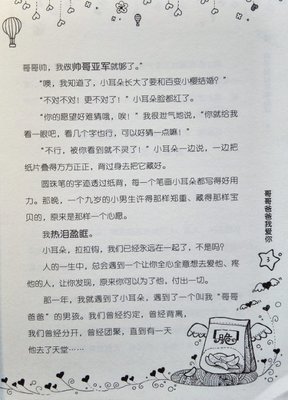 哥哥帅，我做帅哥亚军就够了。”
“噢，我知道了，小耳朵长大了要和百变小樱结婚？”
“不对不对！更不对了！”小耳朵脸都红了。
“你的愿望好难猜哦，唉！”我很泄气地说，“你就给我
看一眼吧，看几个字也行，可以好猜一点嘛！”
“不行，被你看到就不灵了！”小耳朵一边说，一边把
纸片叠得方方正正，背过身去把它藏好。
圆珠笔的字迹透过纸背，每一个笔画小耳朵都写得好用
力。那晚，一个九岁的小男生许得那样郑重、藏得那样宝
贝的，原来是那样一个心愿。
我热泪盈眶。
小耳朵，拉拉钩，我们已经永远在一起了，不是吗？
人的一生中，总会遇到一个让你全心全意想去爱他、疼
他的人，让你发现，原来你可以为了他，付出一切。
那一年，我就遇到了小耳朵，遇到了一个叫我“哥哥
爸爸”的男孩。我们曾经约定，曾经背离，
我们曾经分开，曾经团聚，直到有一天
他去了天堂……
哥哥爸爸我爱你
3
脆